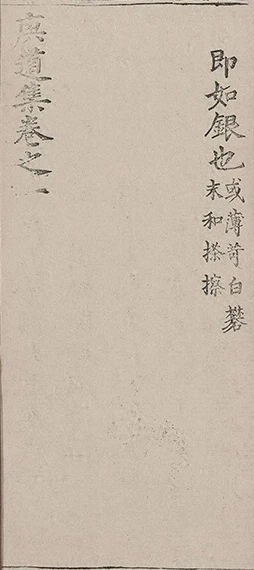 即如銀也或薄苛白礬
末和搽擦
庚道集卷之一